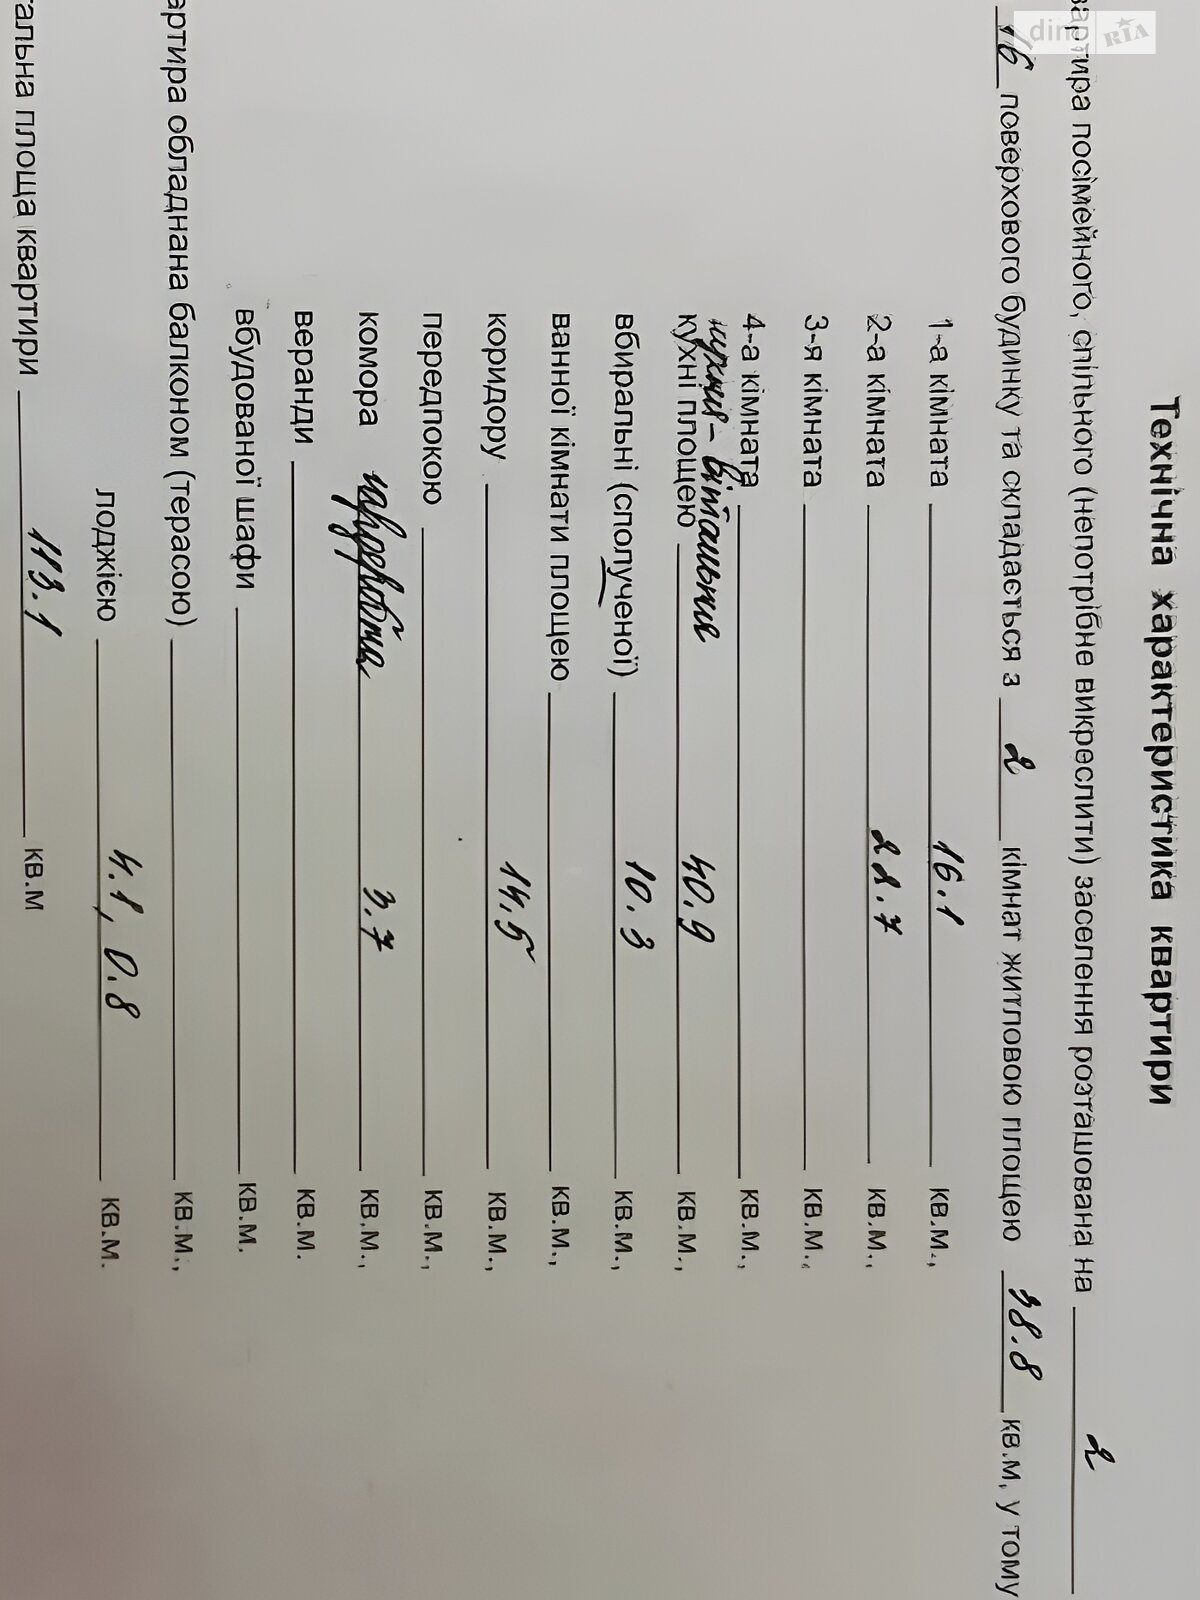 dim RIA
Технічна характеристика квартири
вартира посімейного, спільного (непотрібне викреслити) заселення розташована на 2
16 поверхового будинку та складається з 2 кімнат житловою площею 38.8 кв.м, у тому
1-а кімната 16.1 кв.м.,
2-а кімната 22.7 кв.м.,
3-я кімната кв.м.,
4-а кімната кв.м.,
кухня-вітальня
кухні площею 40.9 кв.м.,
вбиральні (сполученої) 10.3 кв.м.,
ванної кімнати площею кв.м.,
коридору 14.5 кв.м.,
передпокою кв.м.,
комора гардеробна 3.7 кв.м.,
веранди кв.м.
вбудованої шафи кв.м.
артира обладнана балконом (терасою) кв.м.,
лоджією 4.1, 0.8 кв.м.
альна площа квартири 113.1 кв.м